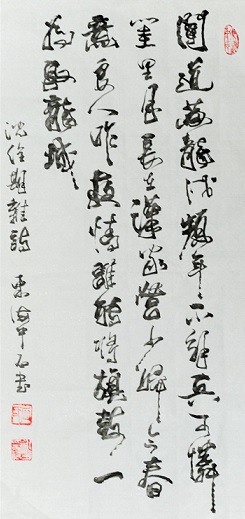 聞道黃龍戍頻年不解兵可憐
閨里月長在漢家營少婦今春
意良人昨夜情誰能將旗鼓一
為取龍城
沈佺期雜詩 東海中石書